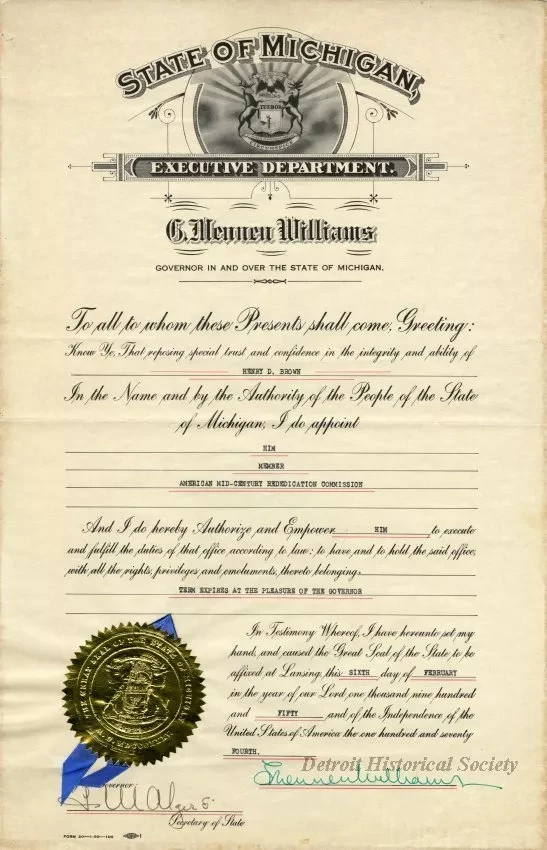 STATE OF MICHIGAN,
TUEBOR
CIRCUMSPICE
EXECUTIVE DEPARTMENT.
G. Mennen Williams
GOVERNOR IN AND OVER THE STATE OF MICHIGAN.
To all to whom these Presents shall come, Greeting:
Know Ye, That reposing special trust and confidence in the integrity and ability of
HENRY D. BROWN
In the Name and by the Authority of the People of the State
of Michigan, I do appoint
HIM
MEMBER
AMERICAN MID-CENTURY REDEDICATION COMMISSION
And I do hereby Authorize and Empower HIM to execute
and fulfill the duties of that office according to law; to have and to hold the said office,
with all the rights, privileges and emoluments, thereto belonging:
TERM EXPIRES AT THE PLEASURE OF THE GOVERNOR
In Testimony Whereof, I have hereunto set my
hand, and caused the Great Seal of the State to be
affixed at Lansing, this SIXTH day of FEBRUARY
in the year of our Lord one thousand nine hundred
and FIFTY and of the Independence of the
United States of America the one hundred and seventy
FOURTH.
Detroit Historical Society
G Mennen Williams
Governor:
F M Alger Jr
Secretary of State
FORM 20